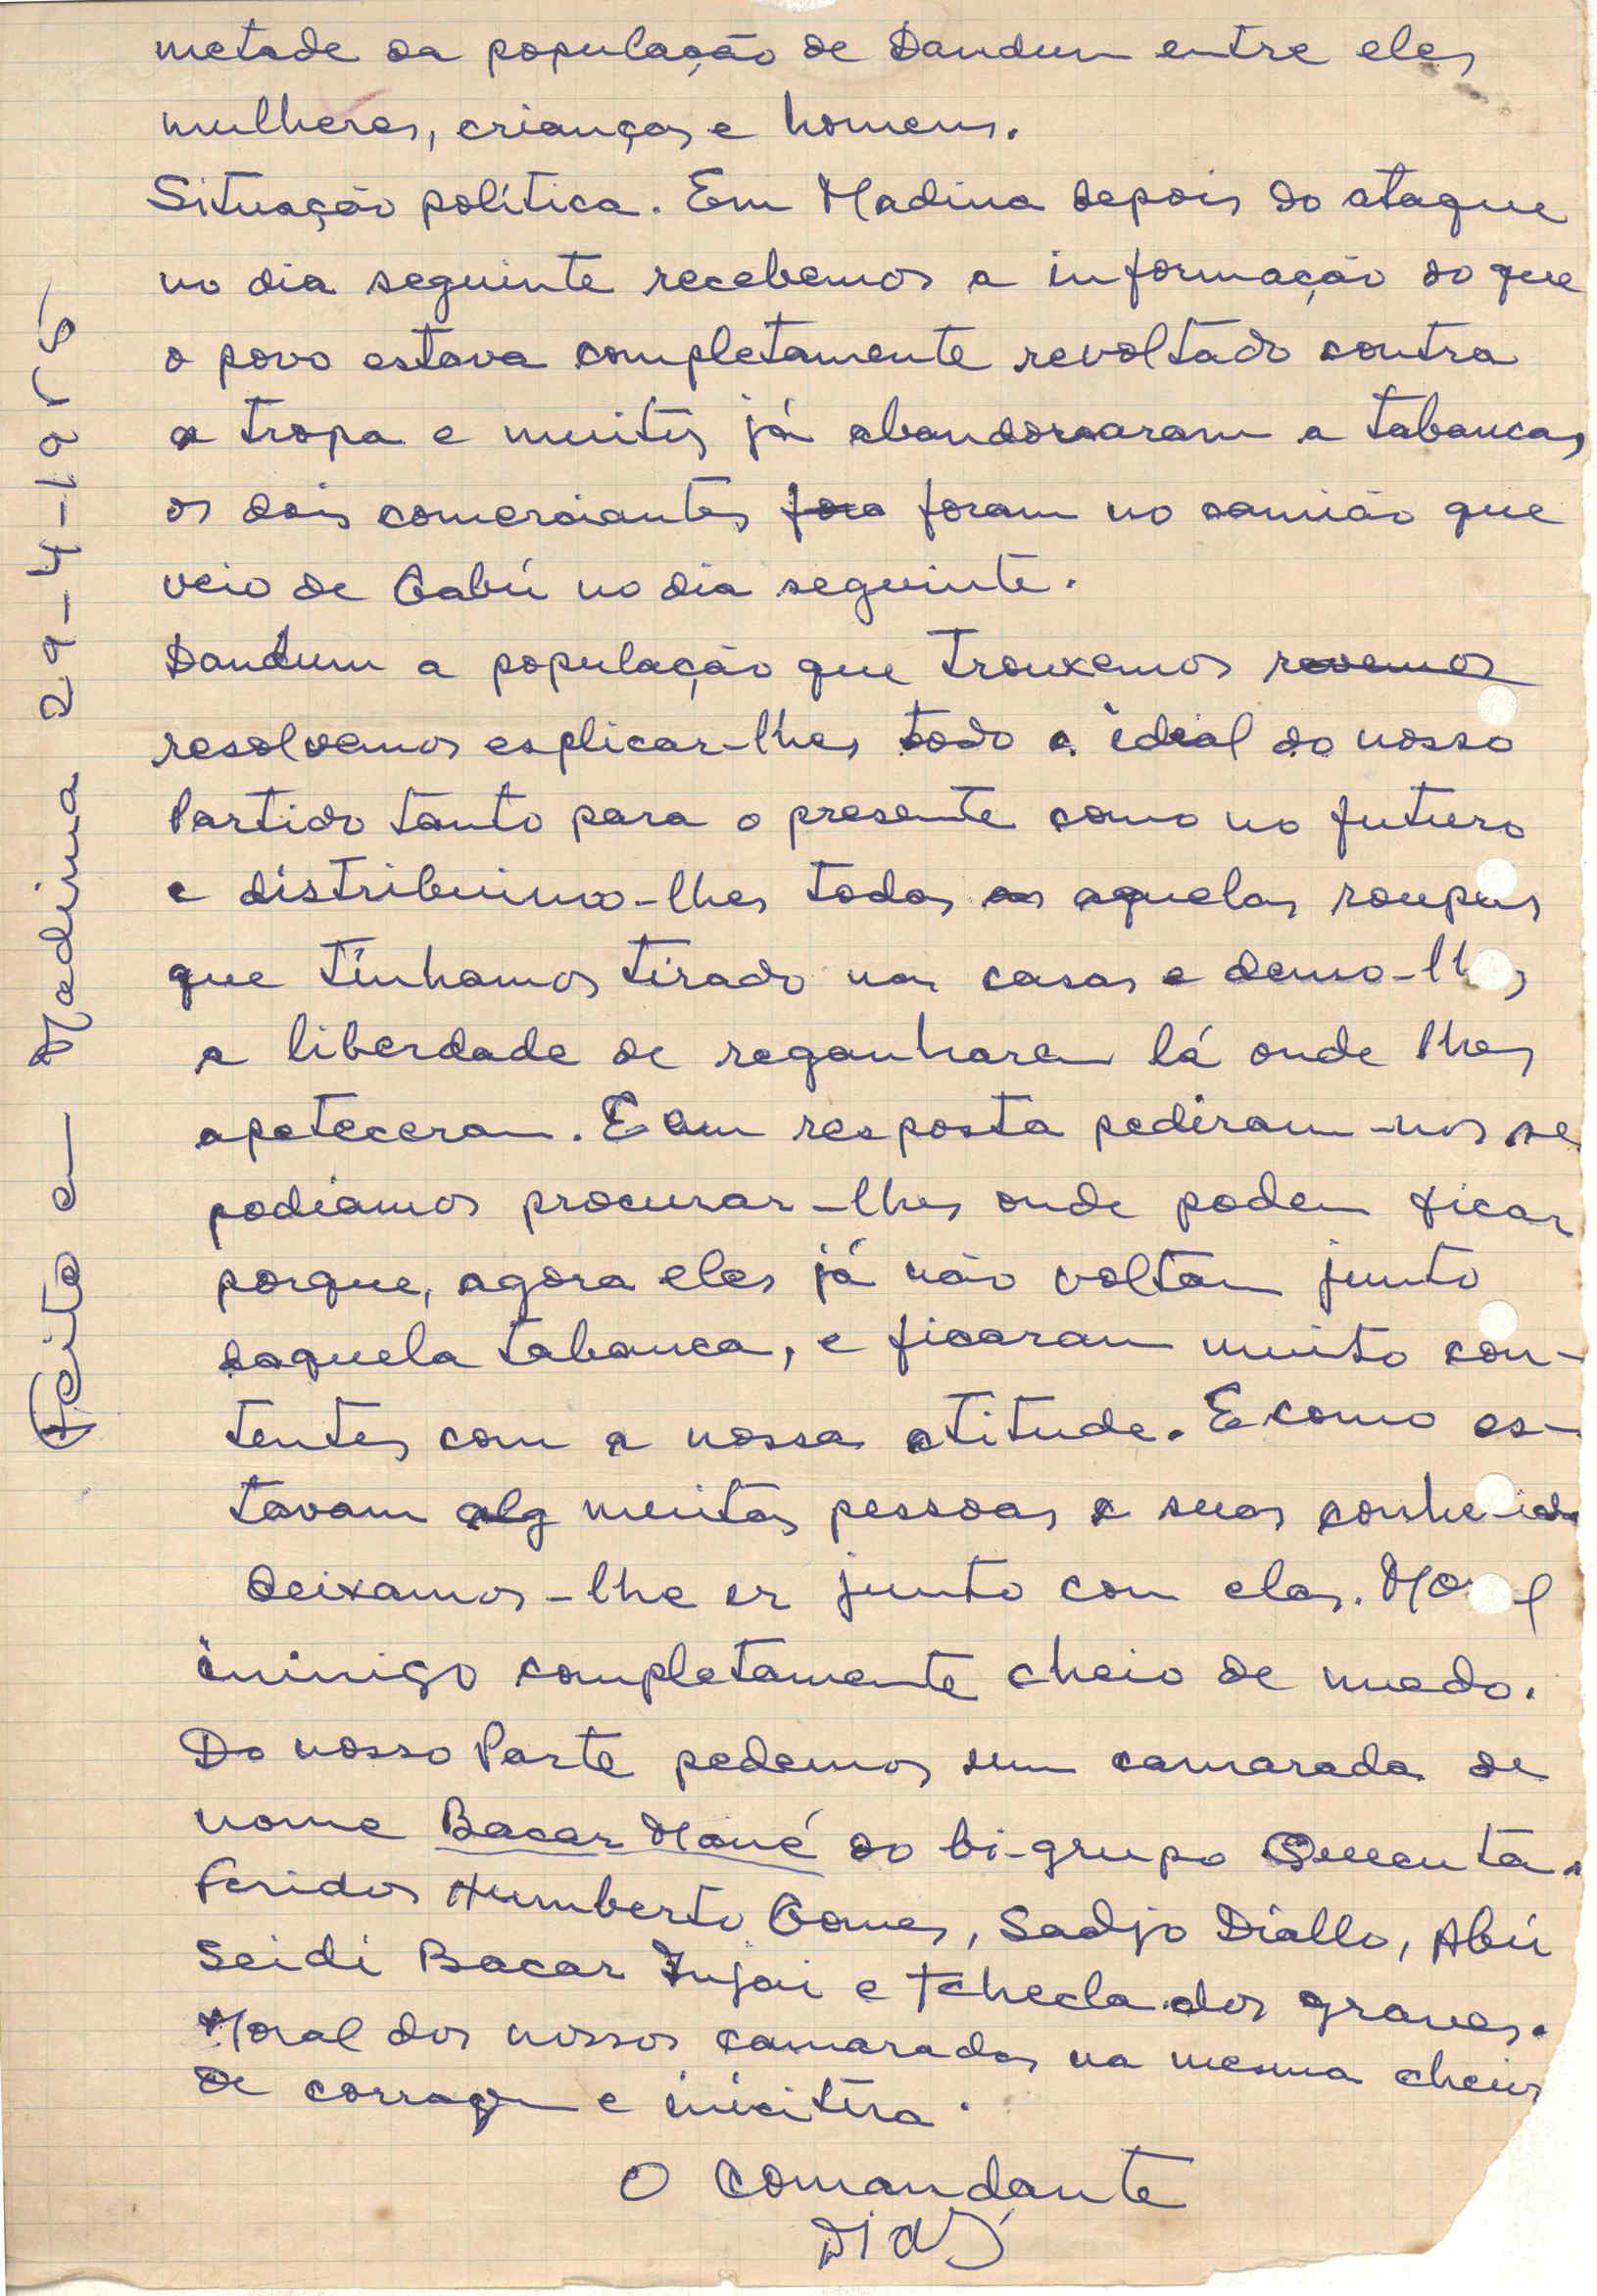 metade da população de Dandum entre eles
mulheres, crianças e homens.
Situação política. Em Madina depois do ataque
no dia seguinte recebemos a informação do que
o povo estava completamente revoltado contra
a tropa e muitos já abandonaram a tabancas
os dois comerciantes fora foram no camião que
veio de Gabú no dia seguinte.
Dandum a população que trouxemos revemos
resolvemos esplicar-lhes todo o ideal do nosso
Partido tanto para o presente como no futuro
e distribuimo-lhes todas as aquelas roupas
que tinhamos tirado nas casas e demo-lhes
a liberdade de reganharem lá onde lhes
apeteceram. E em resposta pediram-nos se
podiamos procurar-lhes onde podem ficar
porque, agora eles já não voltam junto
daquela tabanca, e ficaram muito con-
tentes com a nossa atitude. E como es-
tavam alg muitas pessoas e suas
deixamos-lhe ir junto com elas. Moral
inimigo completamente cheio de medo.
Do nosso Parte pedemos um camarada de
nome Bacar Mané do bi-grupo Quecuta.
Feridos Humberto Gomes, Sadjo Diallo, Abú
Seidi Bacar Injai e Tchecla dos graves.
Moral dos nossos camaradas na mesma cheios
de corragem e
O Comandante
Feito em Madina 29-4-1965